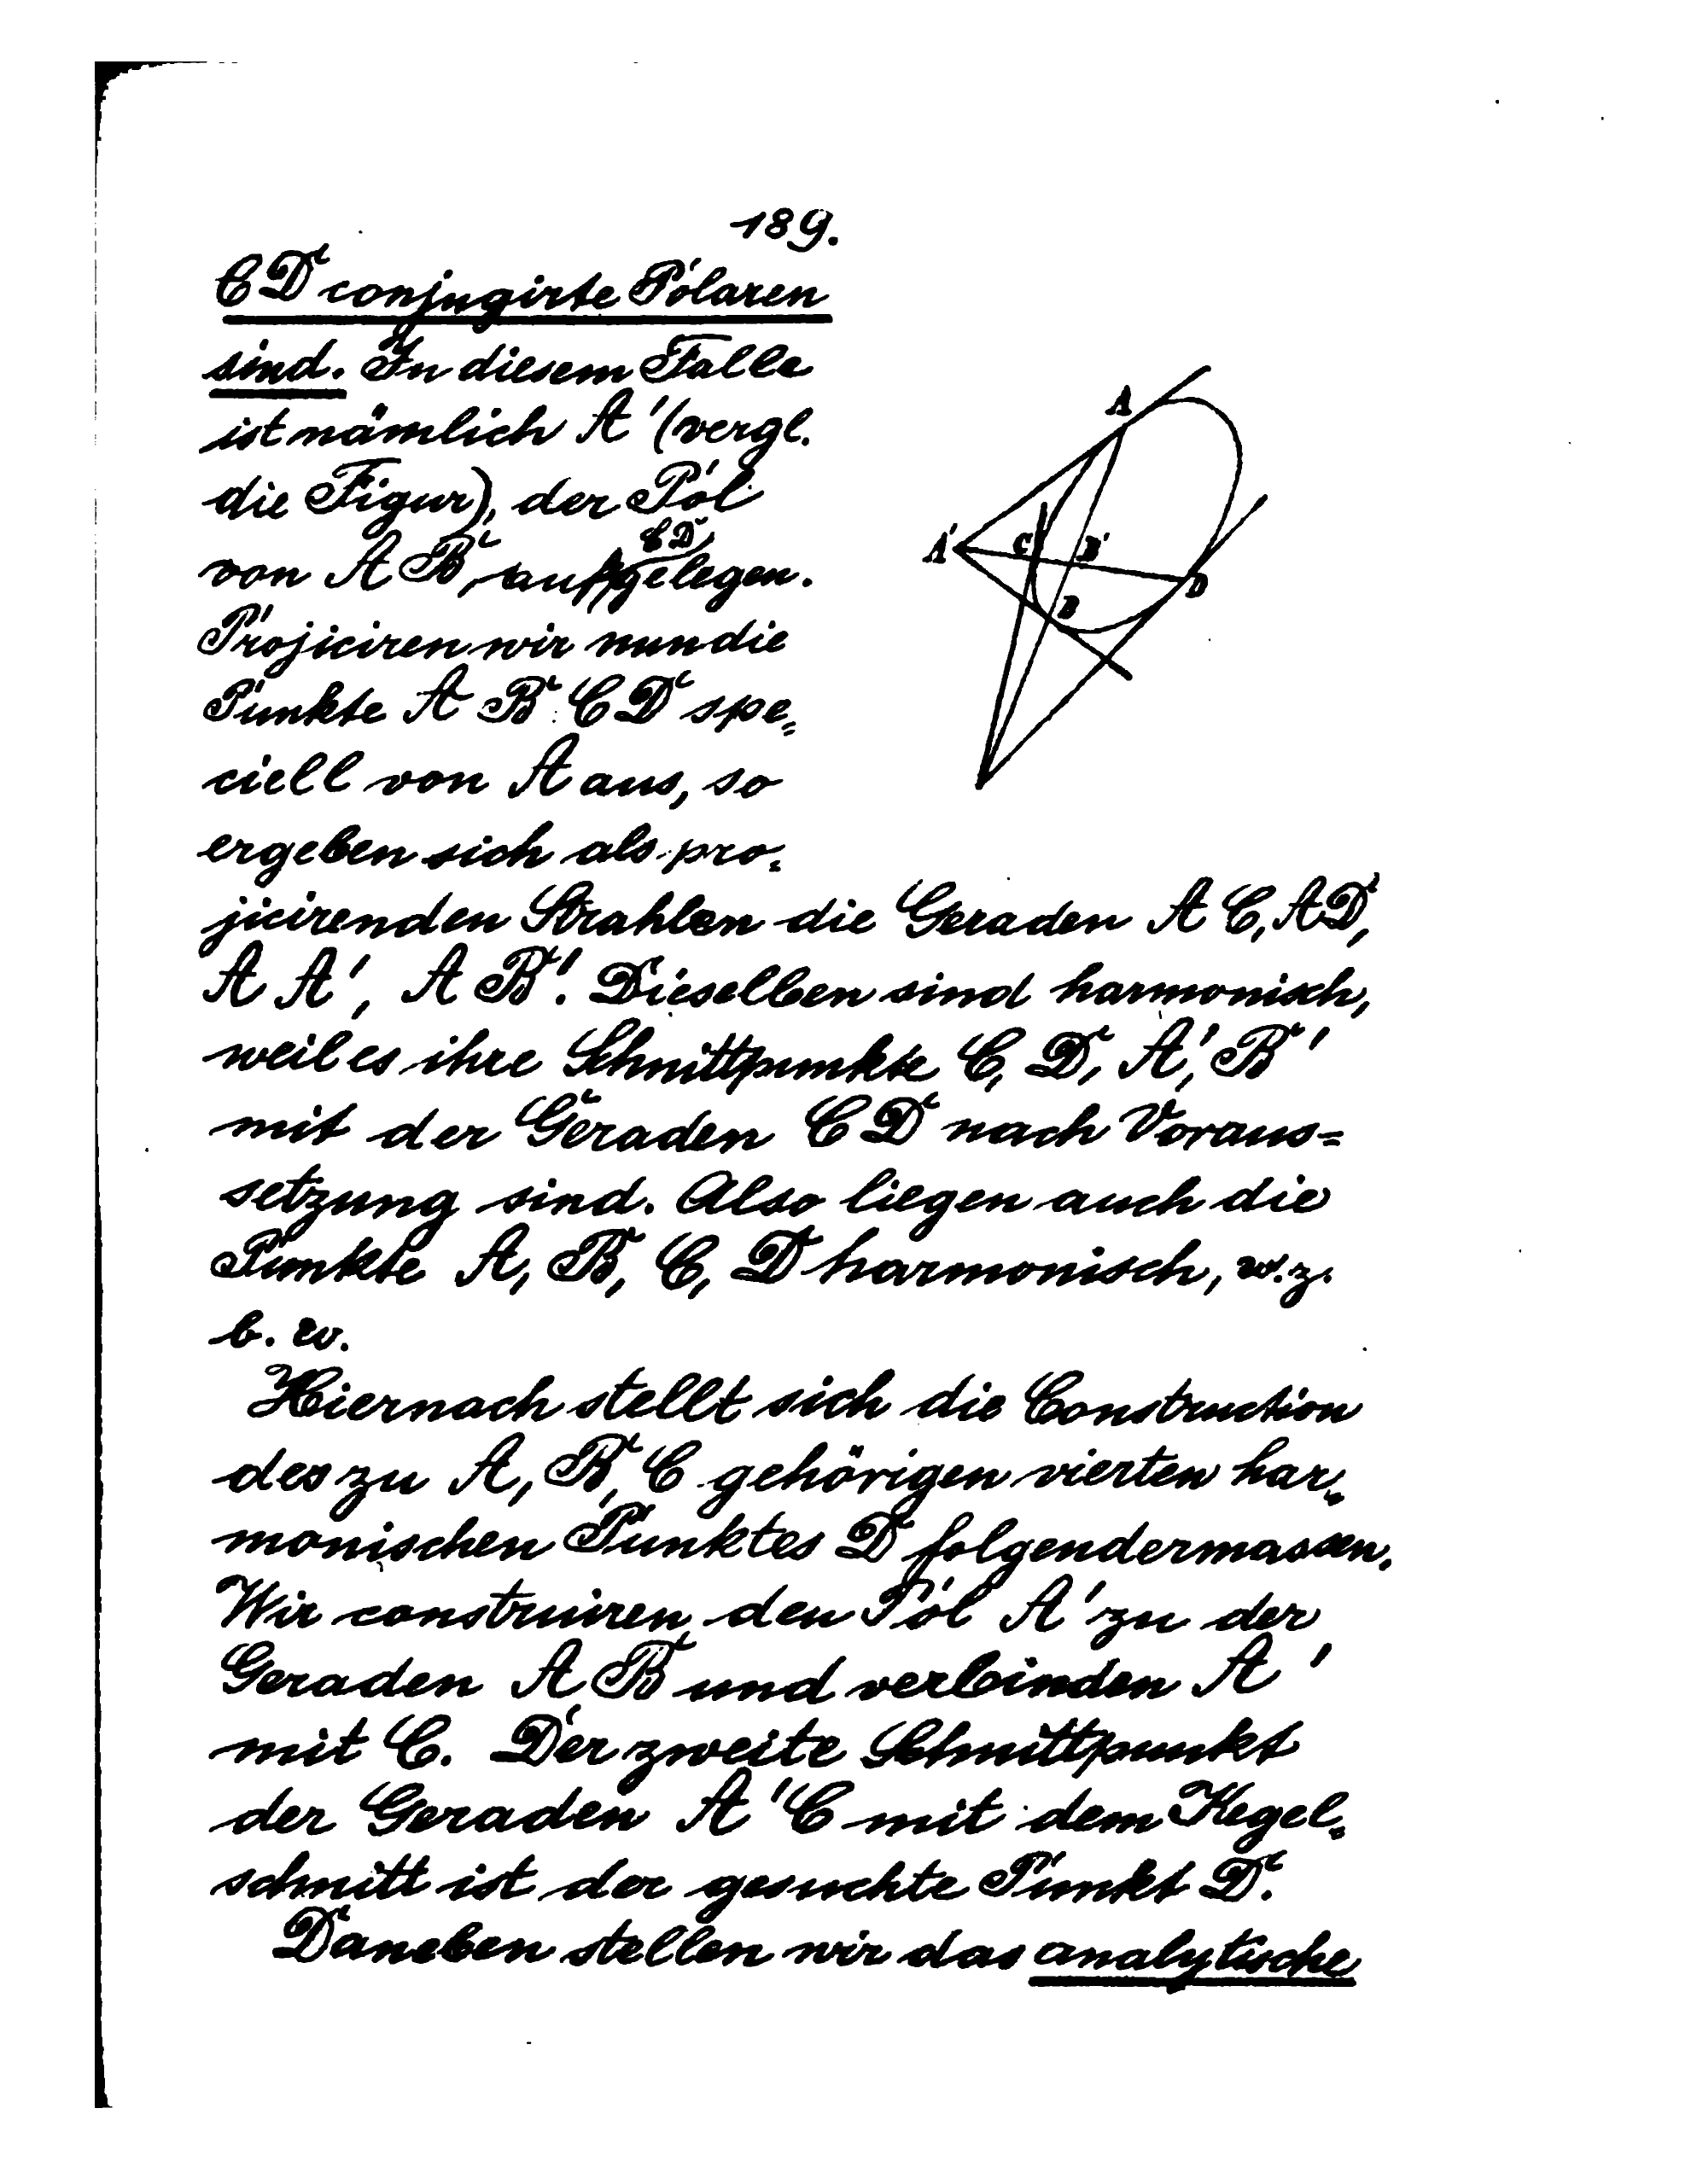 189.
C D conjugirte Polaren
sind. In diesem Falle
ist nämlich A' (vergl.
die Figur), der Pol
von A B, auf C D gelegen.
Projiciren wir nun die
Punkte A B C D spe=
ciell von A aus, so
ergeben sich als pro=
jicirenden Strahlen die Geraden A C, A D,
A A', A B'. Dieselben sind harmonisch,
weil es ihre Schnittpunkte C, D, A', B'
mit der Geraden C D nach Voraus=
setzung sind. Also liegen auch die
Punkte A, B, C, D harmonisch, w. z.
b. w.
Hiernach stellt sich die Construction
des zu A, B, C gehörigen vierten har=
monischen Punktes D folgendermassen.
Wir construiren den Pol A' zu der
Geraden A B und verbinden A'
mit C. Der zweite Schnittpunkt
der Geraden A' C mit dem Kegel=
schnitt ist der gesuchte Punkt D.
Daneben stellen wir das analytische
A
A'
C
B'
D
B